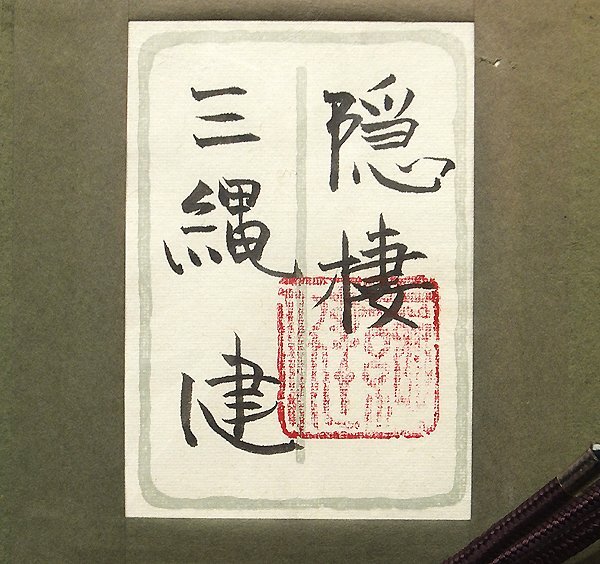 隠棲
三縄建